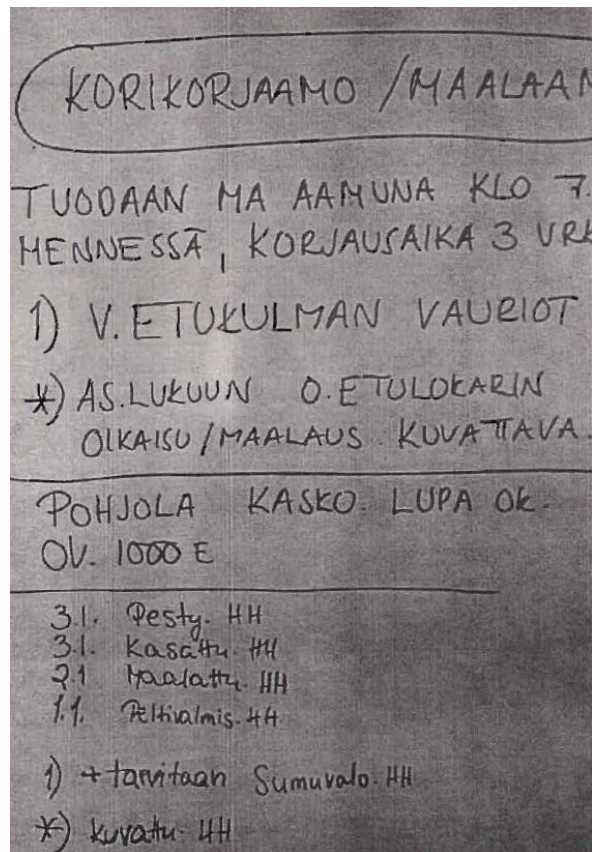 KORIKORJAAMO / MAALAAM
TUODAAN MA AAMUNA KLO 7.
MENNESSÄ, KORJAUSAIKA 3 VRK
1) V. ETUKULMAN VAURIOT
*) AS. LUKUUN O. ETULOKARIN
OIKAISU/MAALAUS. KUVATTAVA.
POHJOLA KASKO. LUPA OK.
OV. 1000 E
3.1. Pesty. HH
3.1. Kasattu. HH
2.1 Maalattu. HH
1.1. Peltivalmis. HH
1) + tarvitaan Sumuvalo. HH
*) kuvattu. HH